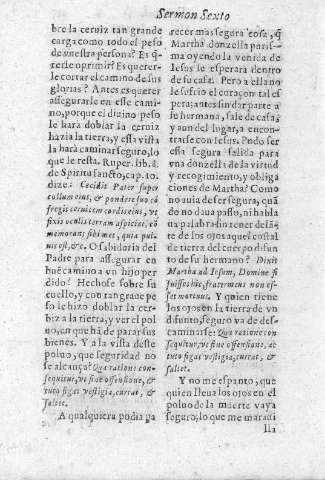 Sermon Sexto
bre la ceruiz tan grande
carga como todo el peso
de vuestra persona? Es q̃-
rerle oprimir? Es querer-
le cortar el camino de sus
glorias? Antes es querer
assegurarle en esse cami-
no, porque el diuino peso
le hará doblar la ceruiz
hazia la tierra, y essa vista
la hará caminar seguro, lo
que le resta. Ruper. lib. 2.
de Spiritu sancto, cap. 10.
dize: Cecidit Pater super
collum eius, & pondere suo cõ
fregit ceruicem cordis eius, vt
fixis oculis terram aspiciat, cõ
memorans sibimet, quia pul-
uis est, &c. O sabiduria del
Padre para assegurar en
buẽ camino a vn hijo per
dido? Hechose sobre su
cuello, y con tan graue pe
so le hizo doblar la cer-
biz a la tierra, y ver el pol
uo, en que hà de parar sus
bienes. Y a la vista deste
poluo, que seguridad no
se alcança? Qua ratione con-
sequitur, vt sine offensione, &
tuto figat vestigia, currat, &
saltet.
A qualquiera podia pa
recer mas segura cosa, q̃
Martha donzella puris-
sima oyendo la venida de
Iesus le esperara dentro
de su casa. Pero a ella no
le sufrio el coraçon tal es
pera; antes sin dar parte a
su hermana, sale de casa,
y aun del lugar, a encon-
trarse con Iesus. Pudo ser
essa segura salida para
vna donzella de la virtud
y recogimiento, y obliga
ciones de Martha? Como
no auia de ser segura, quã
do no daua passo, ni habla
ua palabra sin tener delã-
te de los ojos aquel costal
de tierra del cuerpo difun
to de su hermano? Dixit
Martha ad Iesum, Domine si
fuisses hic, frater meus non es-
set mortuus. Y quien tiene
los ojos en la tierra de vn
difunto, seguro va de des-
caminarse: Qua ratione con
sequitur, vt sine offensione, ac
tuto figat vestigia, currat, &
saltet.
Y no me espanto, que
quien lleua los ojos en el
poluo de la muerte vaya
seguro; lo que me maraui
lla